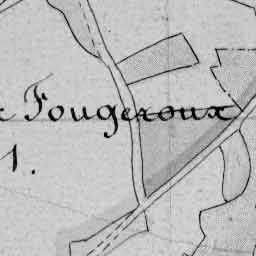 Fougeroux
1.